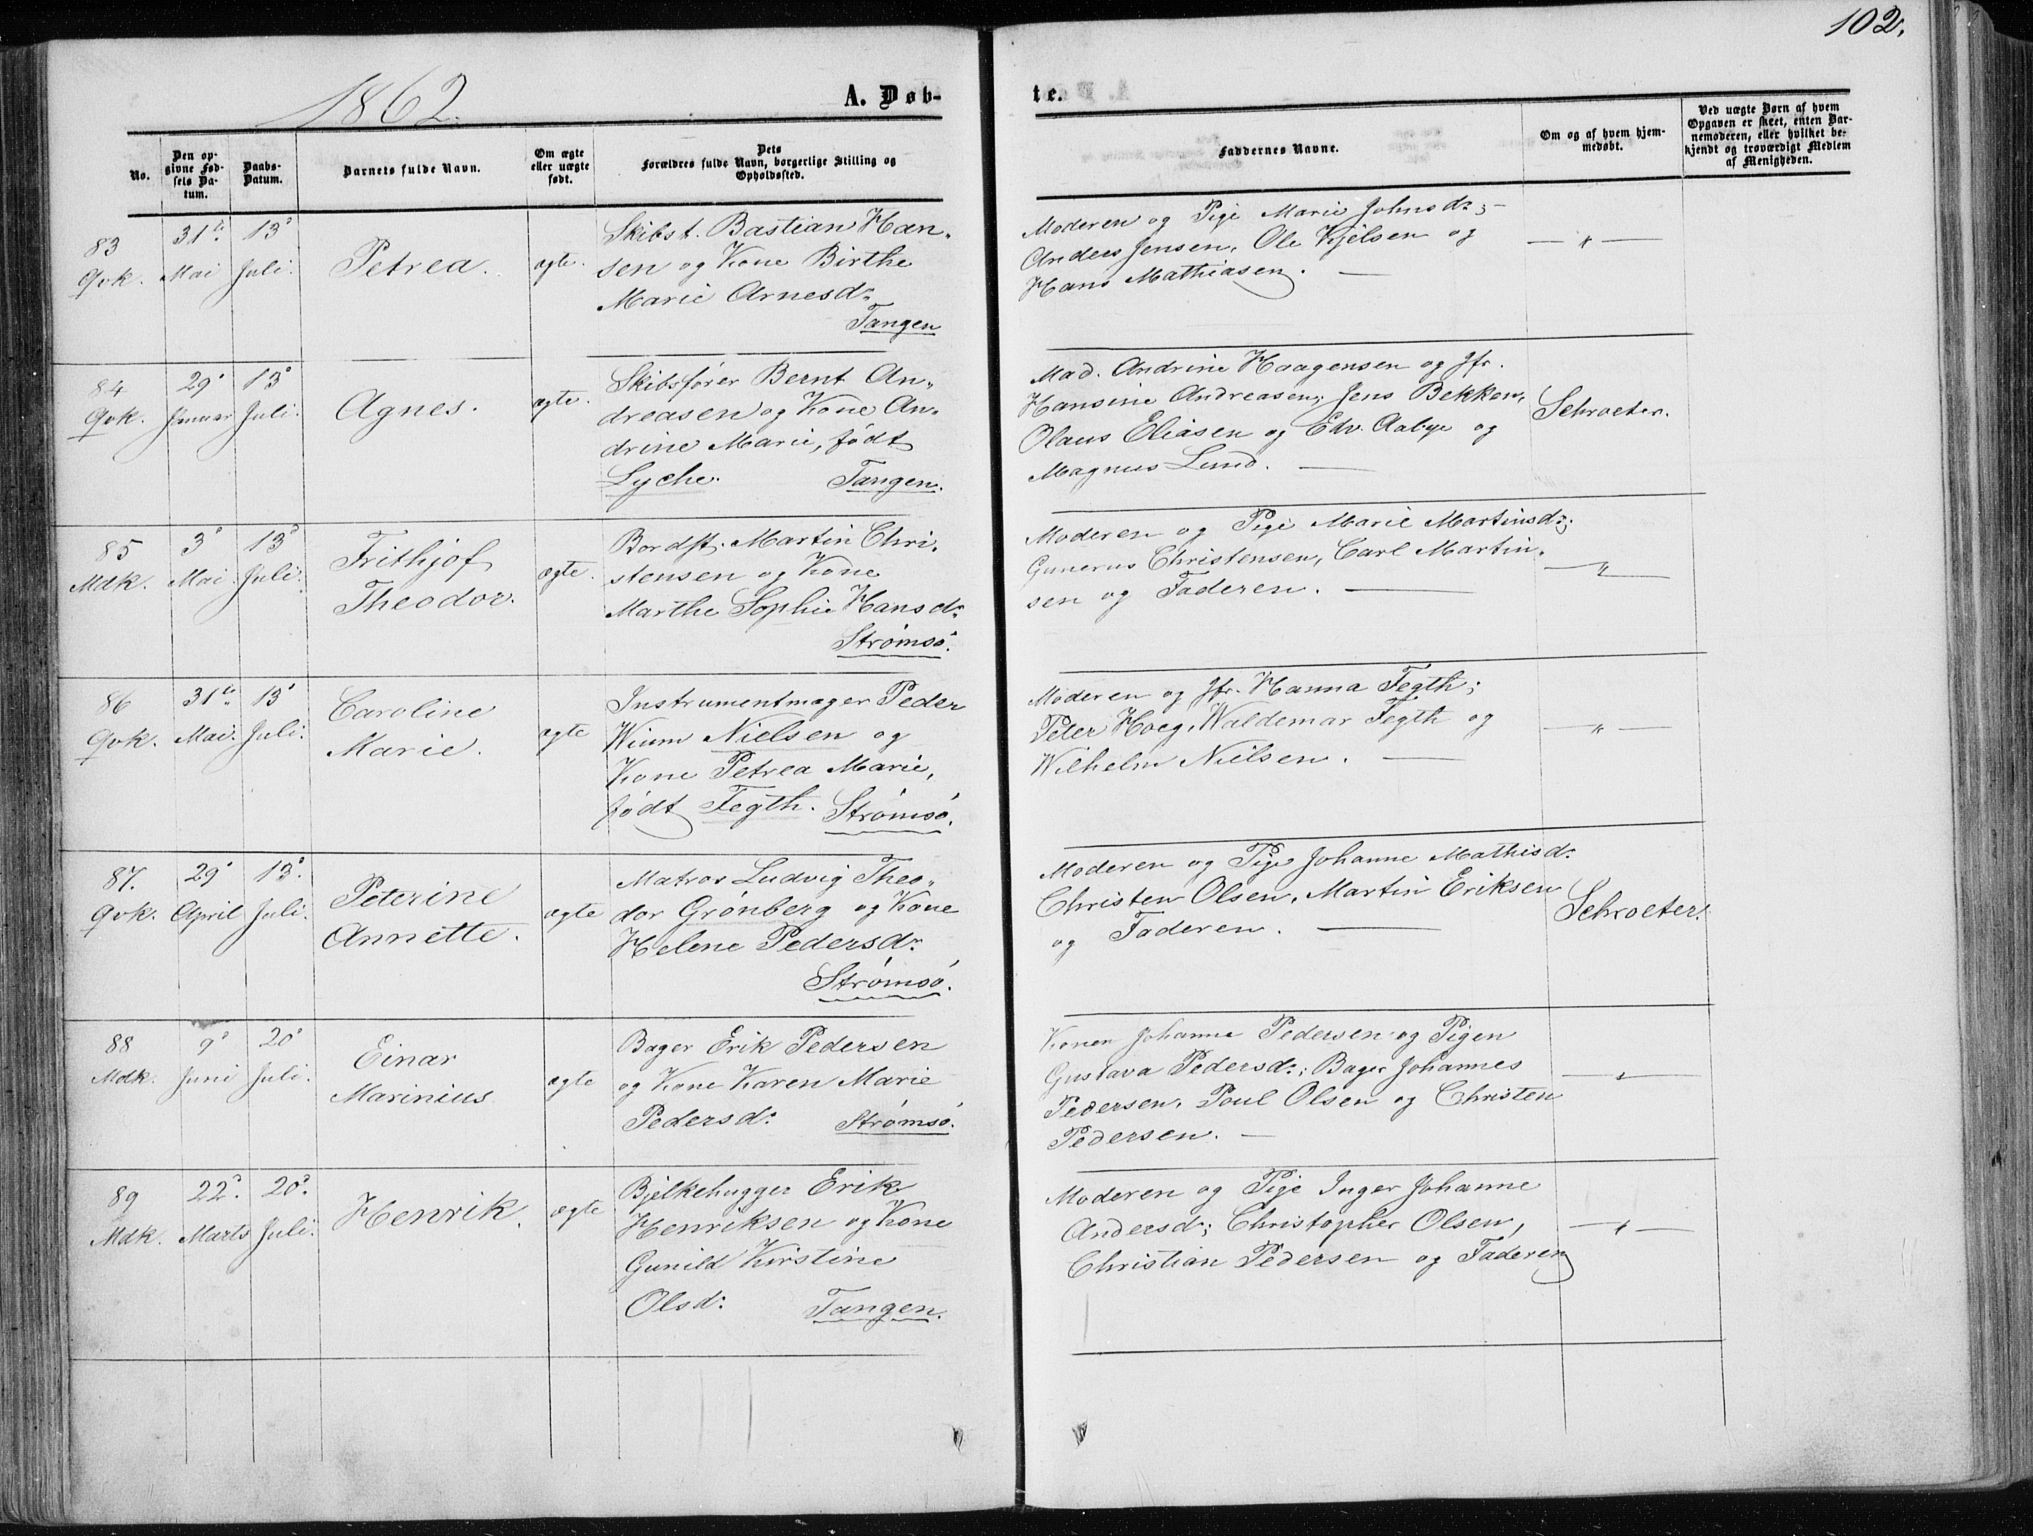 102.
1862.
A. Døb-
te.
No.
Den op-
givne Fød-
sels Da-
tum.
Daabs-
Datum.
Barnets fulde Navn.
Om ægte
eller uægte
født.
Dets
Forældres fulde Navn, borgerlige Stilling og
Opholdssted.
Faddernes Navne.
Om og af hvem hjem-
medøbt.
Ved uægte Børn af hvem
Opgaven er skeet, enten Bar-
nemoderen, eller hvilket be-
kjendt og troværdigt Medlem
af Menigheden.
83
Qvk.
31te
Mai
13de
Juli.
Petrea.
ægte.
Skibst. Bastian Han-
sen og Kone Birthe
Marie Arnesdr.
Tangen
Moderen og Pige Marie Johnsdr;
Anders Jensen, Ole Kjelsen og
Hans Mathiasen. —
— " —
84
Qvk.
29de
Januar
13de
Juli.
Agnes.
ægte.
Skibsfører Bernt An-
dreasen og Kone An-
drine Marie, født
Lyche. Tangen.
Mad. Andrine Haagensen og Jfr.
Hansine Andreasen; Jens Bekken,
Olaus Eliasen og Edv. Aabye og
Magnus Lund. —
Schroeter.
85
Mdk.
3de
Mai.
13de
Juli.
Frithjof
Theodor.
ægte.
Bordst. Martin Chri-
stensen og Kone
Marthe Sophie Hansdr.
Strømsø.
Moderen og Pige Marie Martinsdr;
Gunerus Christensen, Carl Martin-
sen og Faderen. —
— " —
86
Qvk.
31te
Mai.
13de
Juli.
Caroline
Marie.
ægte
Instrumentmager Peder
Wium Nielsen og
Kone Petrea Marie,
født Fegth. Strømsø.
Moderen og Jfr. Hanna Fegth;
Peter Hoeg, Waldemar Fegth og
Wilhelm Nielsen. —
— " —
87.
Qvk.
29de
April
13de
Juli.
Peterine
Annette.
ægte
Matros Ludvig Theo-
dor Grønberg og Kone
Helene Pedersdr.
Strømsø.
Moderen og Pige Johanne Mathisdr.
Christen Olsen, Martin Eriksen
og Faderen. —
Schroeter.
88
Mdk.
9de
Juni
20de
Juli.
Einar
Marinius
ægte
Bager Erik Pedersen
og Kone Karen Marie
Pedersdr. Strømsø.
Konen Johanne Pedersen og Pigen
Gustava Pedersdr.; Bager Johannes
Pedersen, Poul Olsen og Christen
Pedersen. —
— " —
89
Mdk.
22de
Marts
20de
Juli.
Henrik.
ægte
Bjelkehugger Erik
Henriksen og Kone
Gunild Kirstine
Olsdr. Tangen.
Moderen og Pige Inger Johanne
Andersdr; Christopher Olsen,
Christian Pedersen og Faderen
— " —